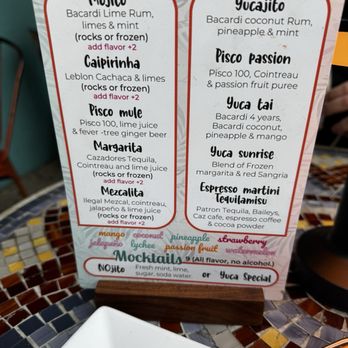 Mojito
Bacardi Lime Rum,
limes & mint
(rocks or frozen)
add flavor +2
Caipirinha
Leblon Cachaca & limes
(rocks or frozen)
add flavor +2
Pisco mule
Pisco 100, lime juice
& fever -tree ginger beer
Margarita
Cazadores Tequila,
Cointreau and lime juice
(rocks or frozen)
add flavor +2
Mezcalita
Ilegal Mezcal, cointreau,
jalapeño & lime juice
(rocks or frozen)
add flavor +2
Yucajito
Bacardi coconut Rum,
pineapple & mint
Pisco passion
Pisco 100, Cointreau
& passion fruit puree
Yuca tai
Bacardi 4 years,
Bacardi coconut,
pineapple & mango
Yuca sunrise
Blend of Frozen
margarita & red Sangria
Espresso martini
Tequilamisu
Patron Tequila, Baileys,
Caz cafe, espresso coffee
& cocoa powder
mango coconut pineapple strawberry
jalapeño lychee passion fruit watermelon
Mocktails 9 (All flavor, no alcohol.)
NOjito Fresh mint, lime, sugar, soda water. or Yuca Special